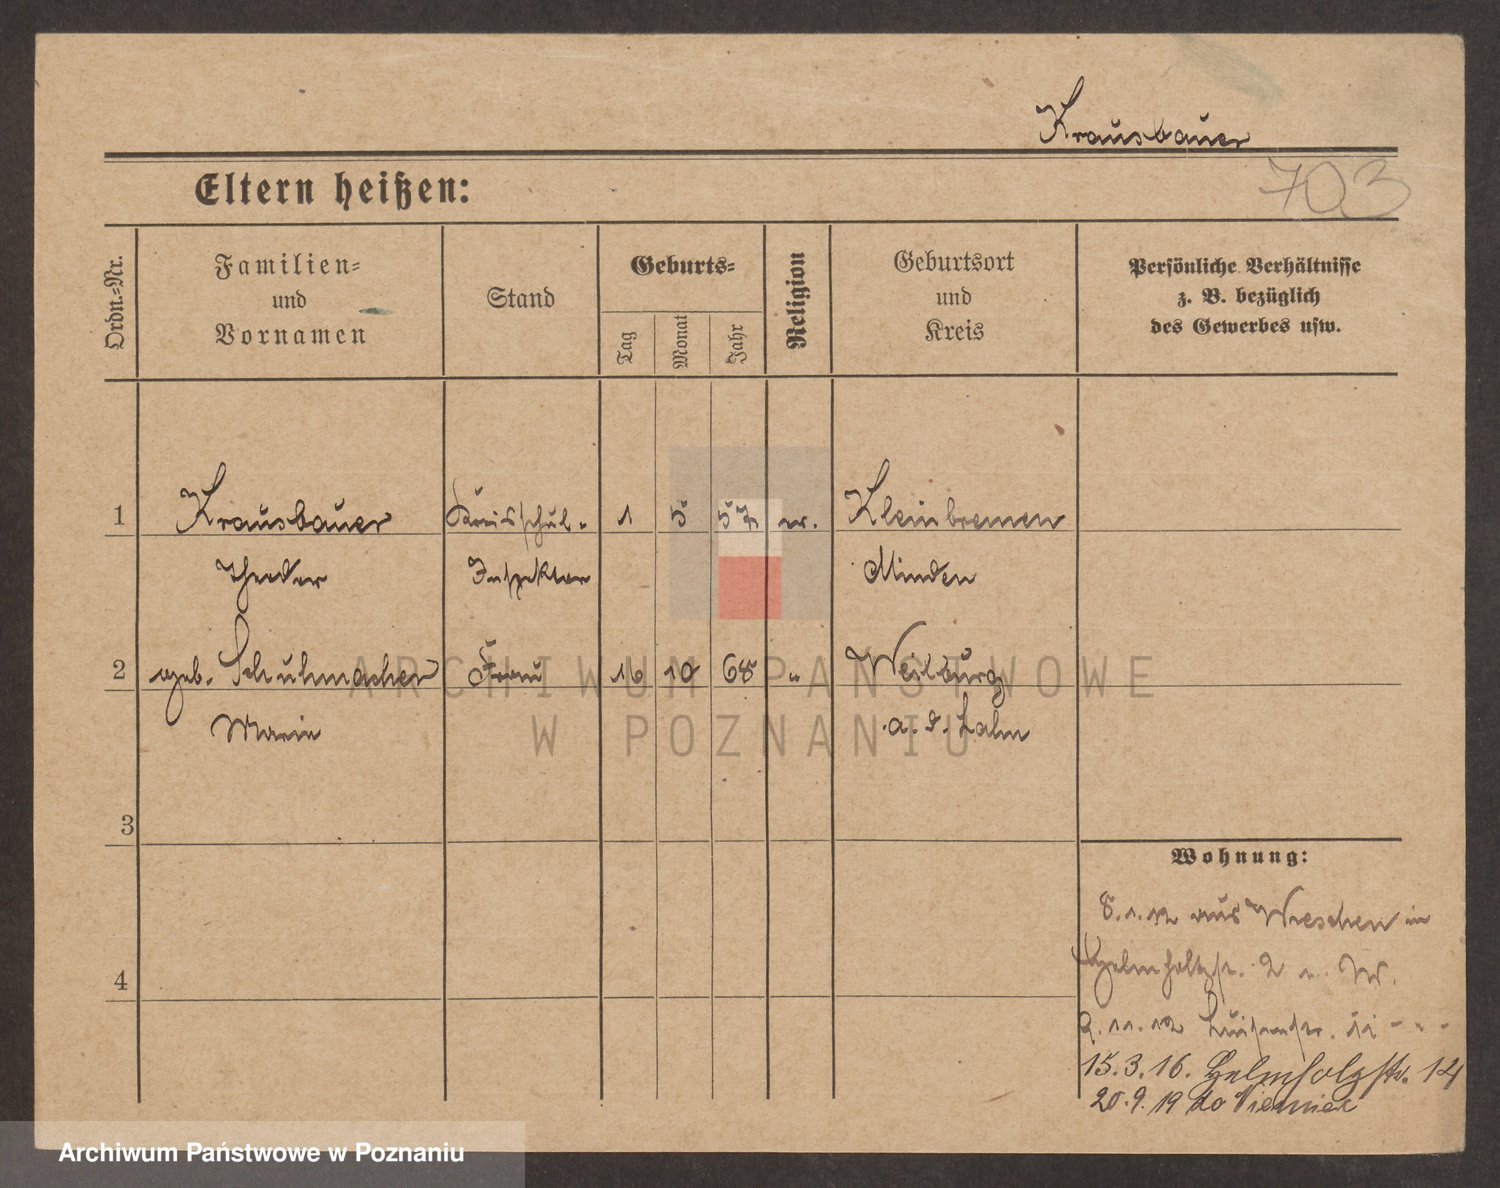 Krausbauer
703
Eltern heißen:
Ordn.=Nr.
Familien=
und
Vornamen
Stand
Geburts=
Tag
Monat
Jahr
Religion
Geburtsort
und
Kreis
Persönliche Verhältnisse
z. B. bezüglich
des Gewerbes usw.
1 Krausbauer Kreisschul- 1 5 57 ev. Kleinbremen
Theodor Inspektor Minden
2 geb. Schuhmacher Frau 16 10 68 " Weilburg
Marie a. d. Lahn
3
4
Wohnung:
8.1.12 aus Wreschen in
Helmholtzstr. 2
9.11.12 Luisenstr.
15.3.16. Helmholzstr. 14
20.9.19 do Niemiec
ARCHIWUM PAŃSTWOWE
W POZNANIU
Archiwum Państwowe w Poznaniu